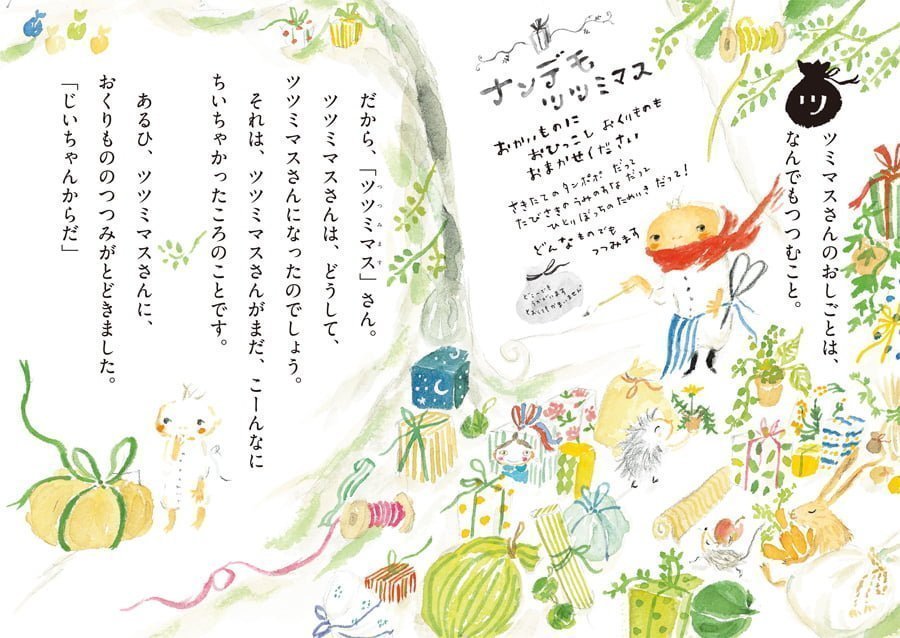 ツミマスさんのおしごとは、
なんでもつつむこと。
ツ
ナンデモ
ツツミマス
おかいものに
おひっこし おくりものも
おまかせください
さきたてのタンポポ だって
たびさきのうみのあな だって
ひとりぼっちのためいき だって!
どんなものでも
つつみます
どこへでも
うかがいます
だから、「ツツミマス」さん。
つつみます
ツツミマスさんは、どうして、
ツツミマスさんになったのでしょう。
それは、ツツミマスさんがまだ、こーんなに
ちいちゃかったころのことです。
あるひ、ツツミマスさんに、
おくりもののつつみがとどきました。
「じいちゃんからだ」